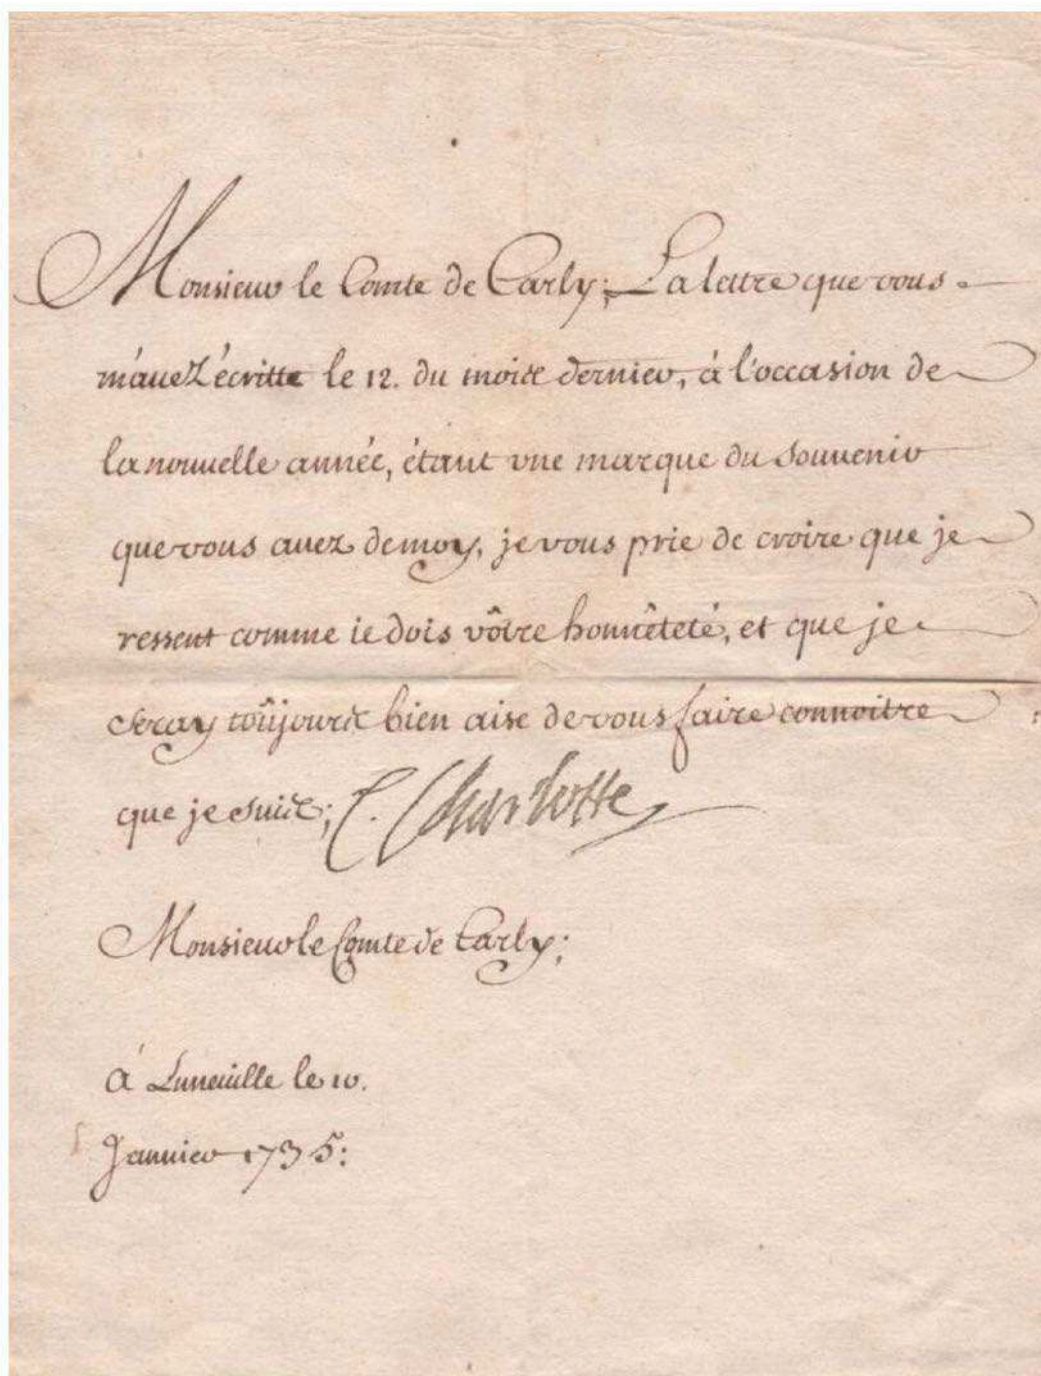 Monsieur le Comte de Carly; La lettre que vous
m'auez écritte le 12. du mois dernier, á l'occasion de
la nouuelle année, étant vne marque du souuenir
que vous auez de moy, je vous prie de croire que je
ressent comme ie dois vôtre honnêteté, et que je
seray toûjours bien aise de vous faire connoitre
que je suis; E. Charlotte
Monsieur le Comte de Carly;
á Luneuille le 10.
Januier 1735: